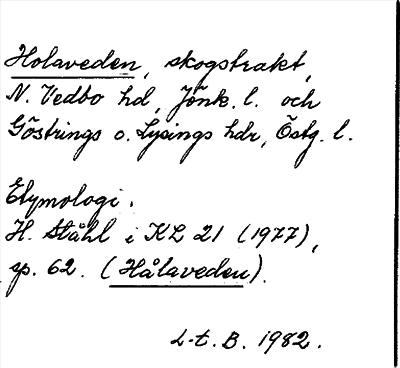 Holaveden, skogstrakt,
N. Vedbo hd, Jönk. l. och
Göstrings o. Lysings hdr, Östg. l.
Etymologi.
H. Ståhl i KL 21 (1977),
sp. 62. (Hålaveden).
L-t. B. 1982.